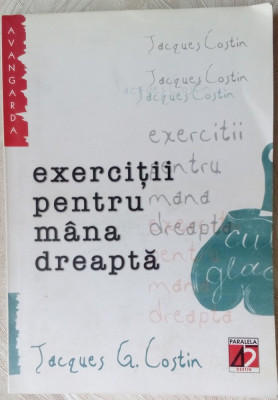 AVANGARDA
Jacques Costin
Jacques Costin
Jacques Costin
exercitii
pentru
mana
dreapta
exerciții
pentru
mâna
dreaptă
cu
glad
pentru
mana
dreapta
Jacques G. Costin
PARALELA
42